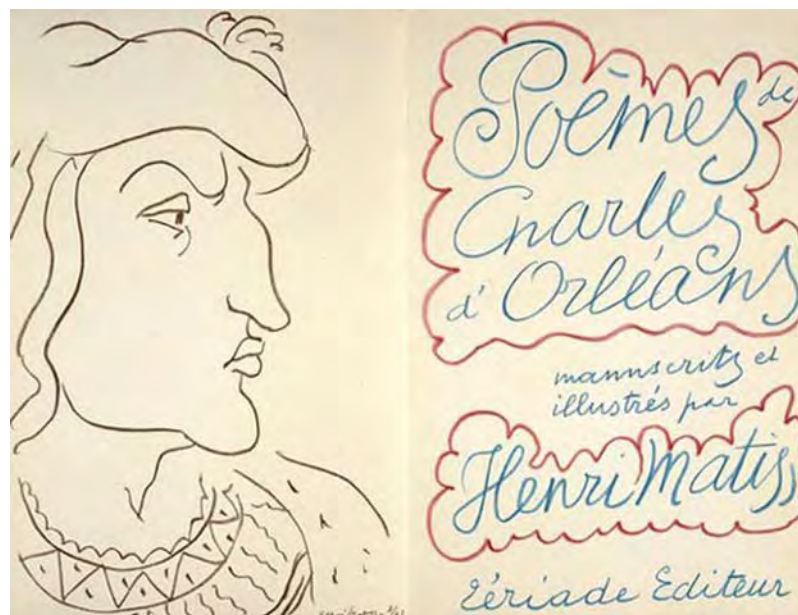 Poèmes de
Charles
d'Orléans
manuscrits et
illustrés par
Henri Matiss
tériade Editeur